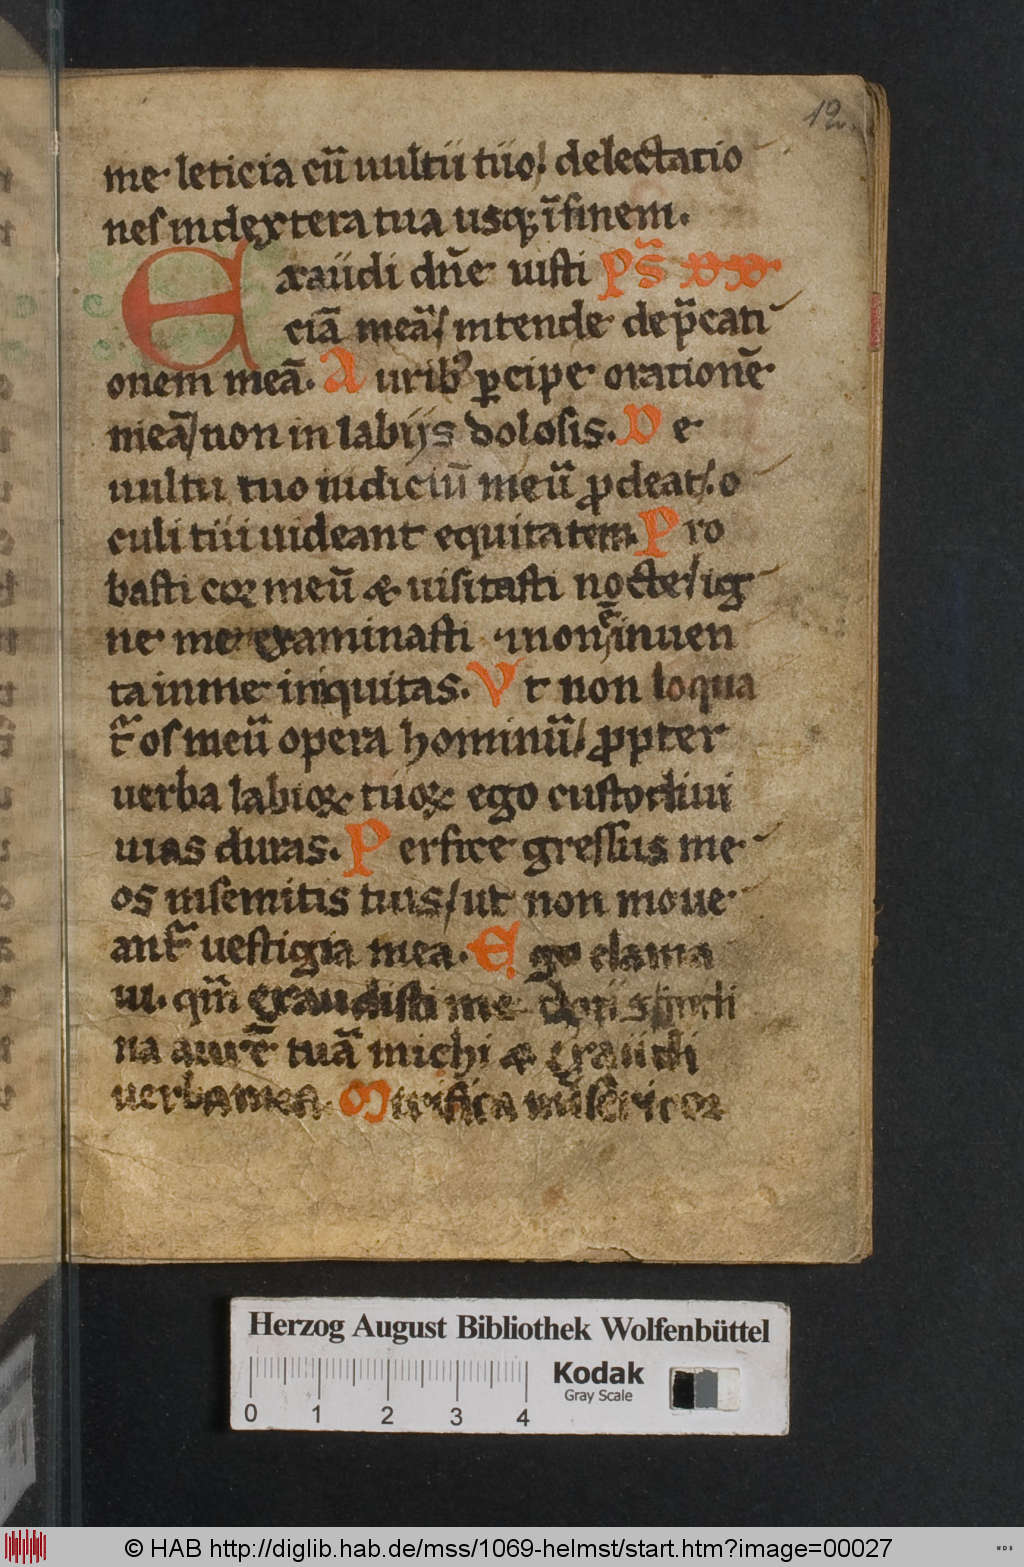 12.
me leticia cū uultu tuo / delectatio
nes in dextera tua usq; ī finem.
Exaudi dn̄e iusti Ps̄
ciā meā / intende dep̄cati
onem meā. Aurib; ꝑcipe orationē
meā / non in labijs dolosis. De
uultu tuo iudiciū meū ꝓdeat / o
culi tui uideant equitatem. Pro
basti cor meū & uisitasti nocte / ig
ne me examinasti & non ē inuen
ta in me iniquitas. Vt non loqua
t᷑ os meū opera hominū / ꝓpter
uerba labioꝝ tuoꝝ ego custodiui
uias duras. Perfice gressus me
os in semitis tuis / ut non moue
ant᷑ uestigia mea. Ego clama
ui. qm̄ exaudisti me deus incli
na aurē tuā michi & exaudi
uerba mea. Mirifica misericor
Herzog August Bibliothek Wolfenbüttel
Kodak
Gray Scale
0 1 2 3 4
© HAB http://diglib.hab.de/mss/1069-helmst/start.htm?image=00027